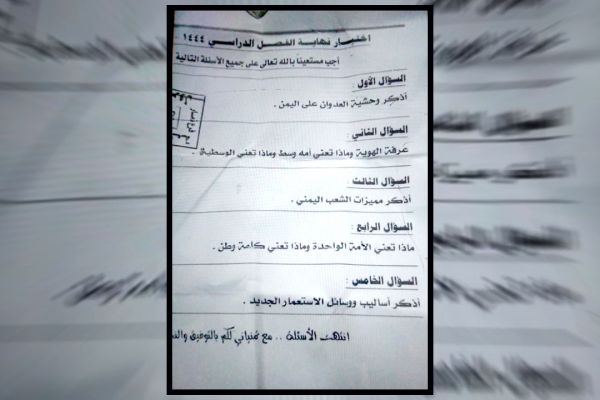 اختبار نهاية الفصل الدراسي ١٤٤٤
أجب مستعيناً بالله تعالى على جميع الأسئلة التالية
السؤال الأول :
أذكر وحشية العدوان على اليمن .
السؤال الثاني :
عرفة الهوية وماذا تعني أمه وسط وماذا تعني الوسطية .
السؤال الثالث :
أذكر مميزات الشعب اليمني .
السؤال الرابع :
ماذا تعني الأمة الواحدة وماذا تعني كلمة وطن .
السؤال الخامس :
أذكر أساليب ووسائل الاستعمار الجديد .
انتهت الأسئلة .. مع تمنياتي لكم بالتوفيق